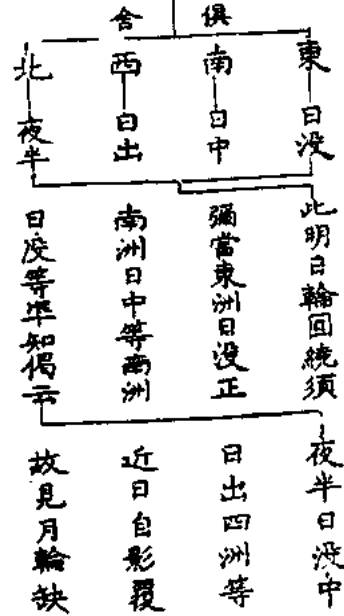 俱舍
東 日没
南 日中
西 日出
北 夜半
此明日輪回繞須
彌當東洲日没正
南洲日中等西洲
日没等準知偈云
夜半日没中
日出四洲等
近日自影覆
故見月輪缺